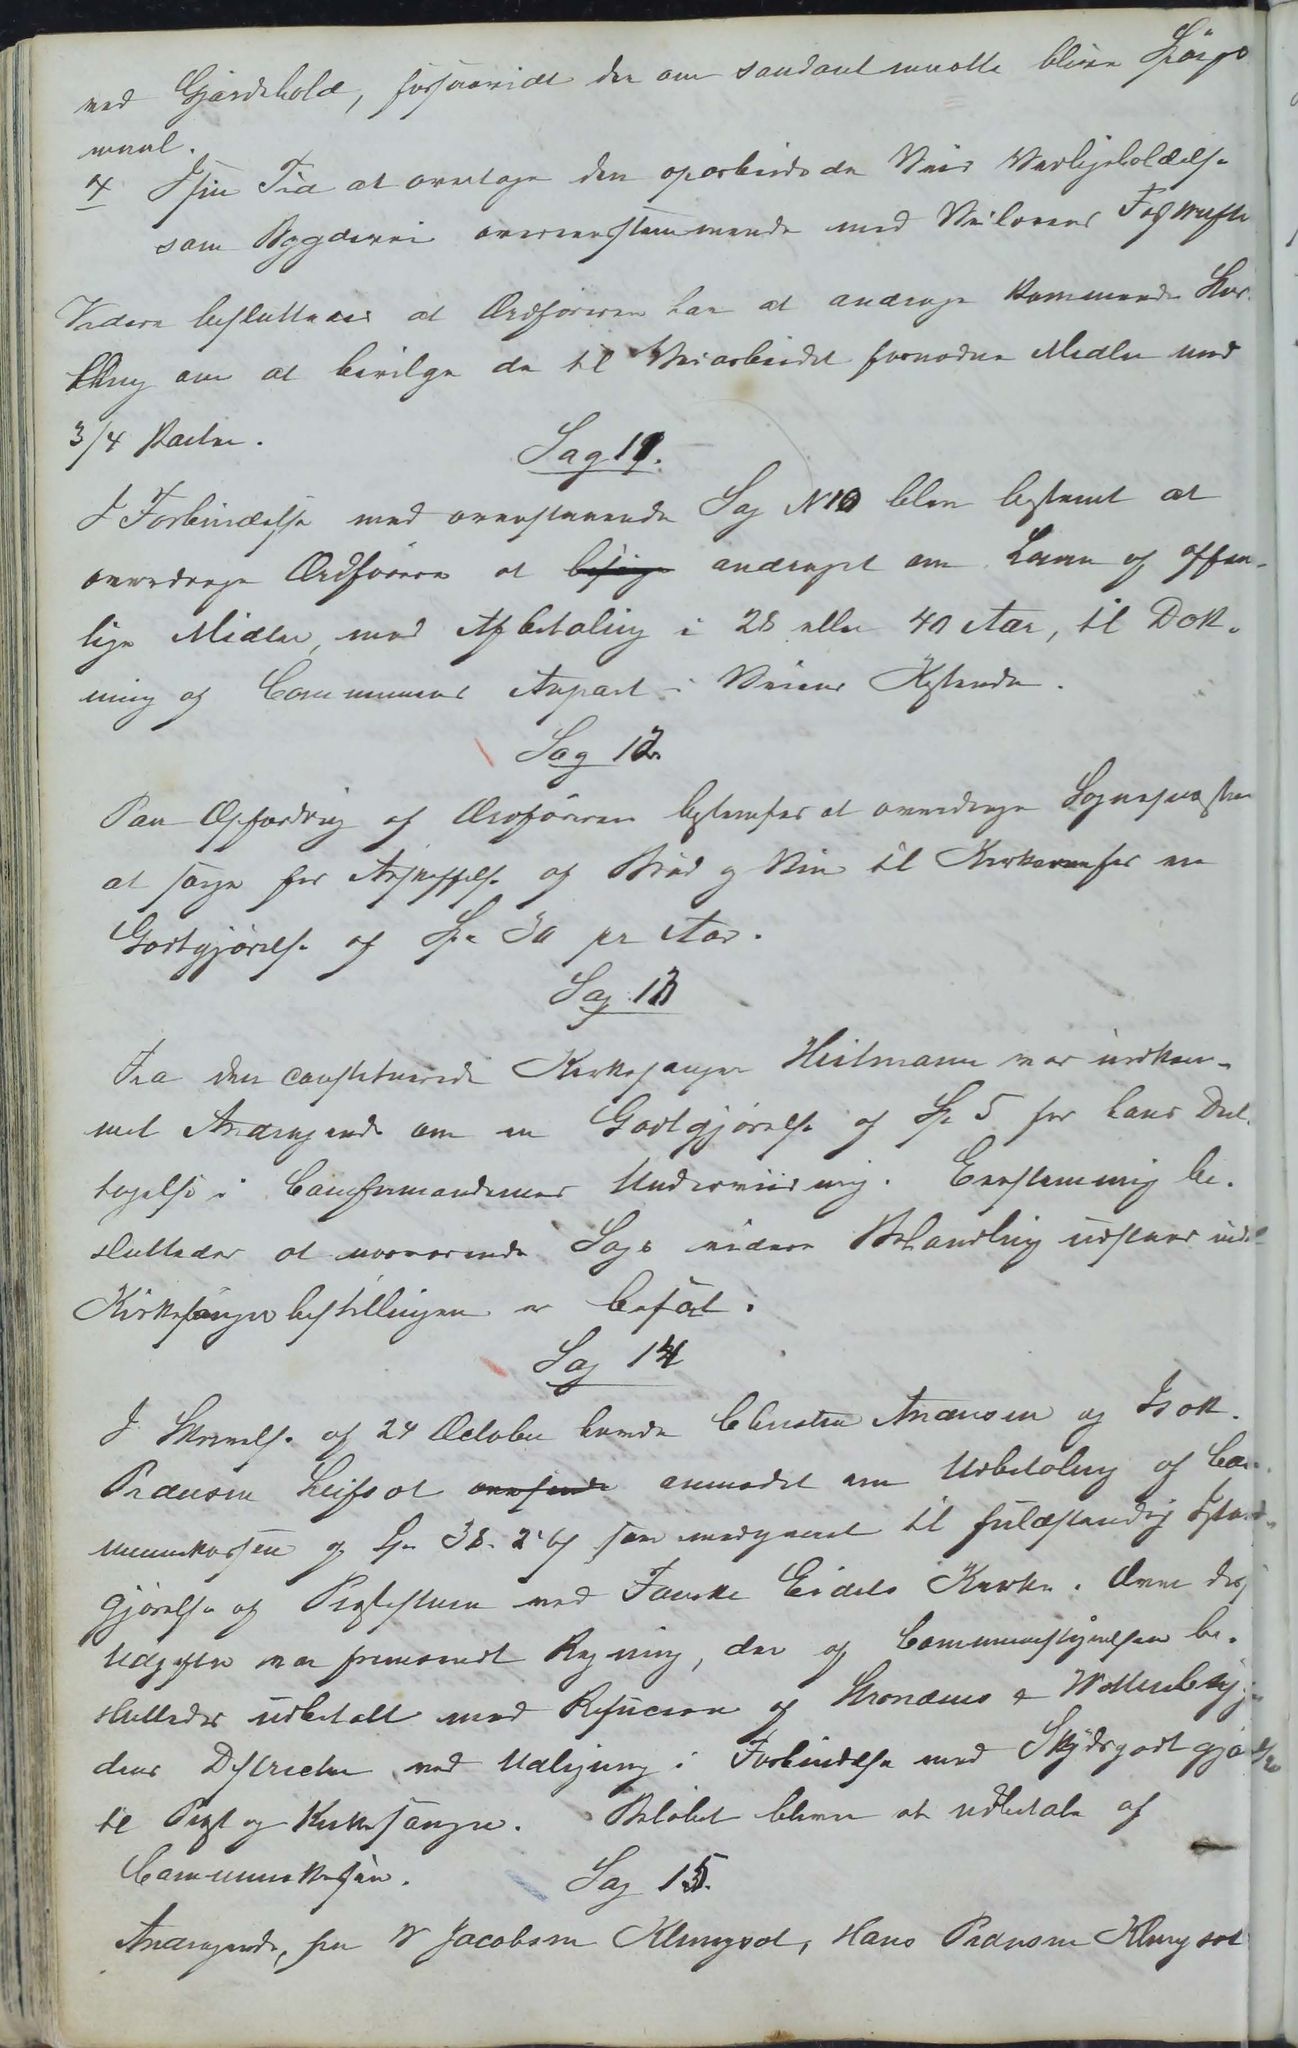 ved Gjærdehold, forsaavidt der om saadant maatte blive Spørgs
maal.
4 I sin Tid at overtage den oparbeidede Veis Vedligeholdelse
som Bygdevei overensstemmende med Veilovens Forskrifter
Videre besluttedes at Ordføreren har at andrage kommende Stor-
thing om at bevilge de til Veiarbeidet fornødne Midler med
3/4 Parter.
Sag 11.
I Forbindelse med ovenstaaende Sag N 10 blev bestemt at
overdrage Ordføreren at andraget om Laan af offen-
lige Midler, med Afbetaling i 28 eller 40 Aar, til Dæk-
ning af Communens Anpart i Veiens Kostende.
Sag 12.
Paa Opfordring af Ordføreren bestemtes at overdrage Sognepræsten
at sørge for Anskaffelse af Brød og Vin til Kirkerne for en
Godtgjørelse af Sp 30 pr Aar.
Sag 13
Fra den constituerede Kirkesanger Heitmann var indkom-
met Andragende om en Godtgjørelse af Sp 5 for hans Del-
tagelse i Confirmandernes Underviisning. Eenstemmig be-
sluttedes at nærværende Sags videre Behandling udstaar indtil
Kirkesangerbestillingen er besat.
Sag 14
I Skrivelse af 24 October havde Christen Andersen og Isak
Pedersen Leifset anmodet om Udbetaling af Com-
munekassen af Sp 38. som medgaaet til fuldstændig Istand-
gjørelse af Præstestuen ved Fauske Eidets Kirke. Over disse
Udgifter var fremsendt Regning, der af Communestyrelsen be-
sluttedes udbetalt med Refusion af
dens Districter ved Udligning i Forbindelse med Skydsgodtgjørelse
til Præst og Kirkesanger. Beløbet bliver at udbetale af
Communekassen.
Sag 15.
Andragende, fra Jacobsen Klungset, Hans Pedersen Klungset